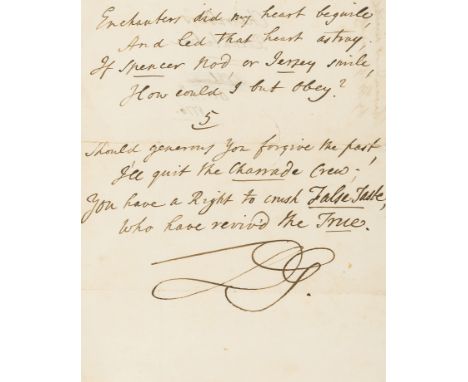 Enchanters did my heart beguile
And led that heart astray,
If Spencer Nod or Jersey smile,
How could I but Obey?
5
Should generous You forgive the past,
I'll quit the Charrade Crew;
You have a Right to crush False Taste,
Who have reviv'd the True.
DG.